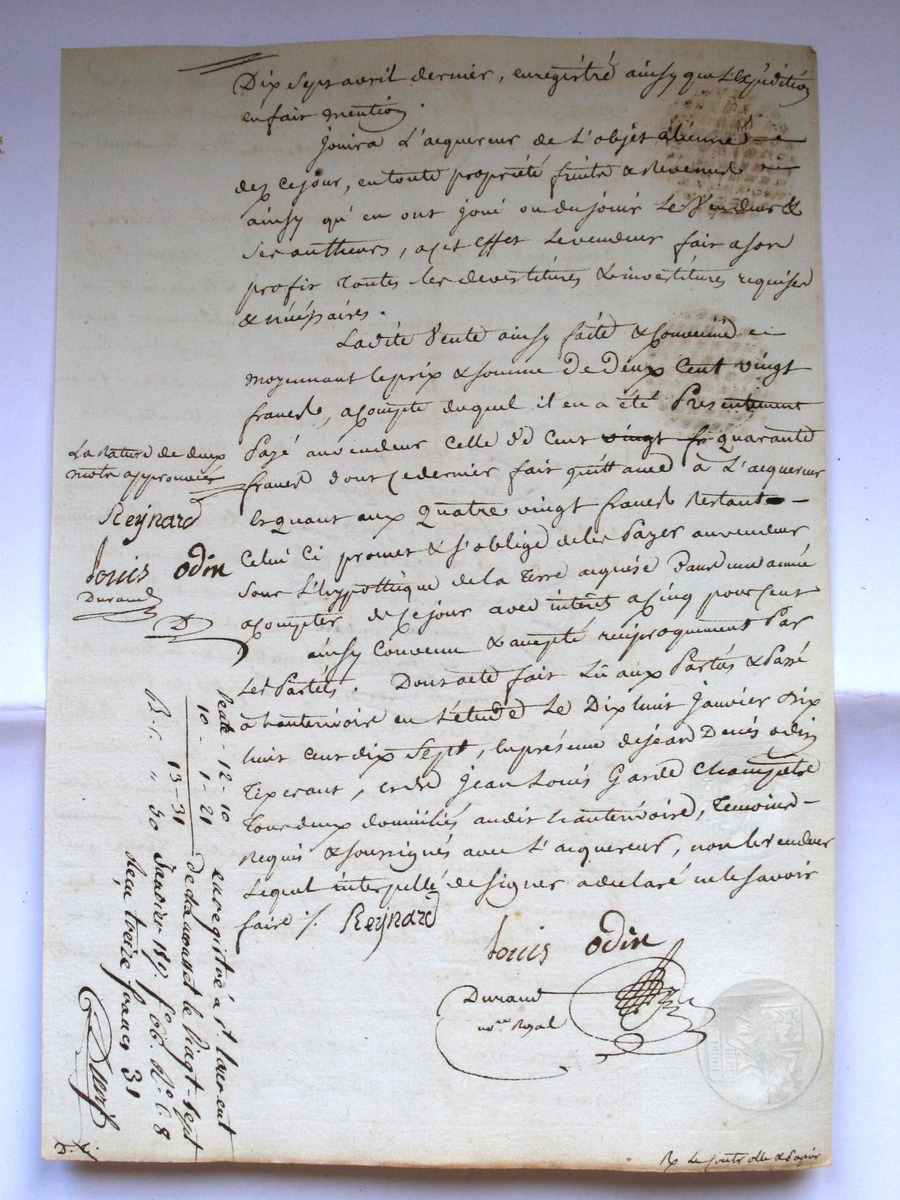 Dix Sept avril dernier, enregistré ainsy que l'Expédition
en fait mention.
Jouira L'acquereur de L'objet aliénné
dez ce jour, en toute propriété fruits & Revenus
ainsy qu'en ont joui ou du jouir Le Vendeur &
Ses autheurs, a cet effet Le vendeur fait a son
profit Toutes les devestitures & investitures requises
& nécéssaires.
La dite Vente ainsy faite & Convenue
moyennant le prix & somme De Deux Cent vingt
francs, a compte duquel il en a été Presentement
Payé au vendeur Celle de Cent vingt fr quarante
francs dont ce dernier fait quittance à L'acquereur
Et quant aux Quatre vingt francs Restant
Celui Ci promet & s'oblige de les Payer au vendeur
sous L'hypothèque de la Terre acquise Dans une année
a compter de ce jour avec intérêt a Cinq pour Cent
ainsy Convenu & accepté réciproquement Par
Les Parties. Dont acte fait Lû aux Parties & Passé
à hauterivoire en L'étude Le Dix huit Janvier Dix
huit Cent dix Sept, En présence de Jean Denis odin
Tixerant, et de Jean Louis Garde Champetre
Tous deux domiciliés audit hauterivoire, Temoins
Requis & soussignés avec L'acquereur, non le vendeur
Lequel interpellé de signer a declaré ne le savoir
faire ./. Reynard
Louis odin
Durand
no.re Royal
La rature de deux
mots approuvée
Reynard
Louis odin
Durand
D
enregistré à st Laurent
de chamousset le vingt-sept
Janvier 1817 f° 66 R° C. 8
Reçu treize francs 31
vente - 12 - 10
10 - 1 - 21
13 - 31
R Le Controlle & Papier